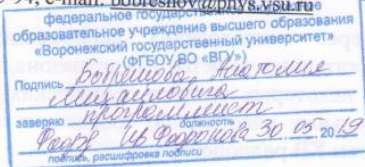 94, e-mail: bobreshov@phys.vsu.ru
федеральное государственное
образовательное учреждение высшего образования
«Воронежский государственный университет»
(ФГБОУ ВО «ВГУ»)
Подпись Бобрешова Анатолия
Михайловича
заверяю программист
должность
30.05.2019
подпись, расшифровка подписи